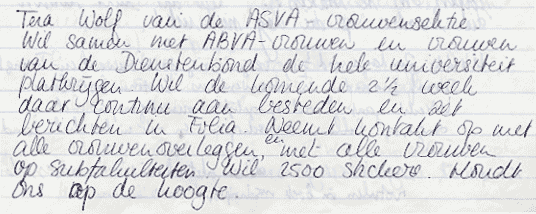 Tera Wolf van de ASVA-vrouwenselectie.
Wil samen met ABVA-vrouwen en vrouwen
van de Dienstenbond de hele universiteit
platkrijgen Wil de komende 2½ week
daar continu aan besteden en zet
berichten in Folia. Neemt kontakt op met
alle vrouwenoverleggen en met alle vrouwen
op subfakulteiten Wil 2500 stickers. Houdt
ons op de hoogte.